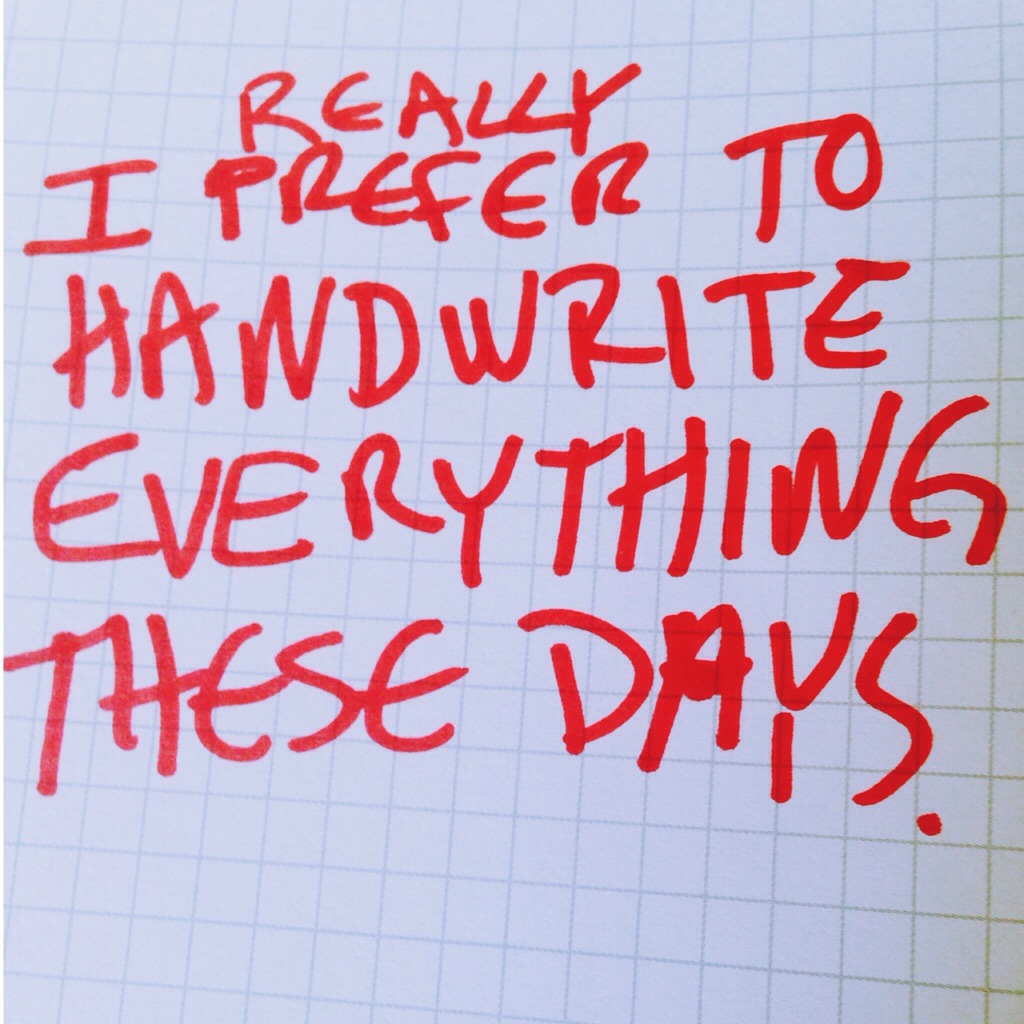 REALLY
I PREFER TO
HANDWRITE
EVERYTHING
THESE DAYS.